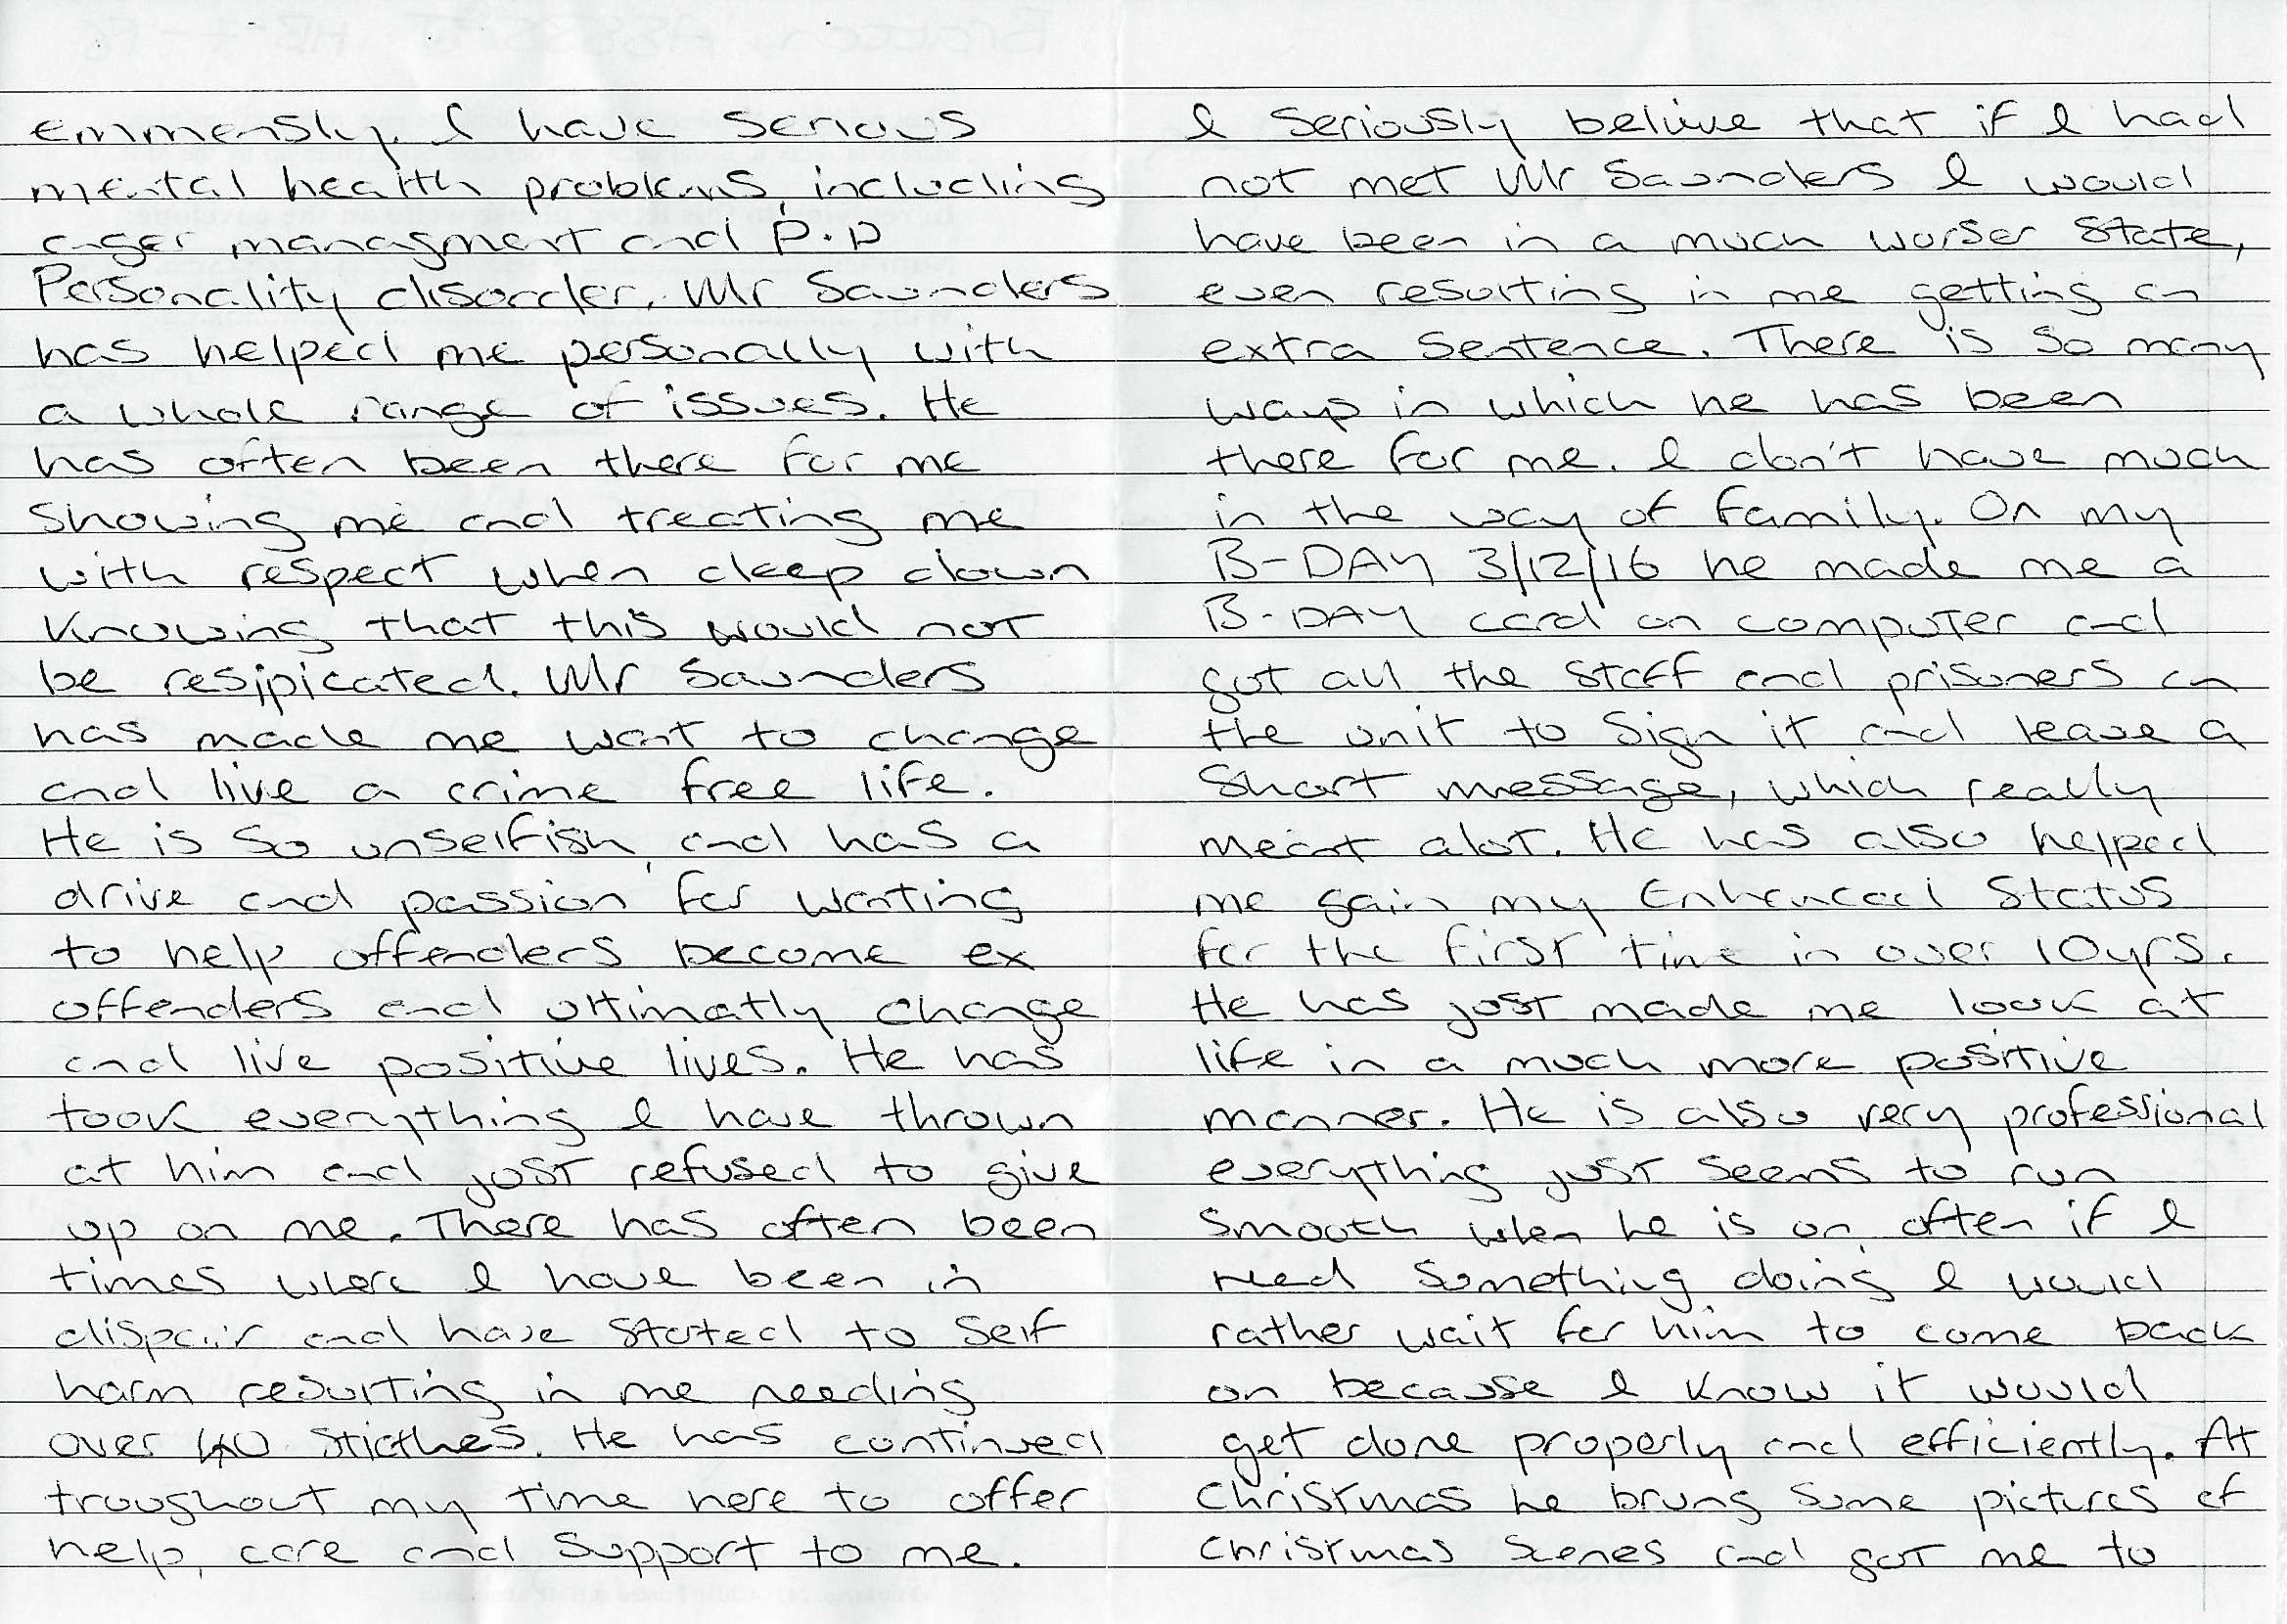 emmensly. I have serious
mental health problems, including
anger managment and P.D
Personality disorder. Mr Saunders
has helped me personally with
a whole range of issues. He
has often been there for me
showing me and treating me
with respect when deep down
knowing that this would not
be resjpicated. Mr Saunders
has made me want to change
and live a crime free life.
He is so unselfish, and has a
drive and passion for wanting
to help offenders become ex
offenders and ultimatly change
and live positive lives. He has
took everything I have thrown
at him and just refused to give
up on me. There has often been
times where I have been in
dispair and have stated to self
harm resulting in me needing
over 40 sticthes. He has continued
troughout my time here to offer
help, care and support to me.
I seriously believe that if I had
not met Mr Saunders I would
have been in a much worser state,
even resulting in me getting an
extra sentence. There is so many
ways in which he has been
there for me. I don't have much
in the way of family. On my
B-DAY 3/12/16 he made me a
B-DAY card on computer and
got all the staff and prisoners on
the unit to sign it and leave a
short message, which really
meant alot. He has also helped
me gain my Enhanced Status
for the first time in over 10yrs.
He has just made me look at
life in a much more positive
manner. He is also very professional
everything just seems to run
smooth when he is on, often if I
need something doing I would
rather wait for him to come back
on because I know it would
get done properly and efficiently. At
christmas he brung some pictures of
christmas scenes and got me to